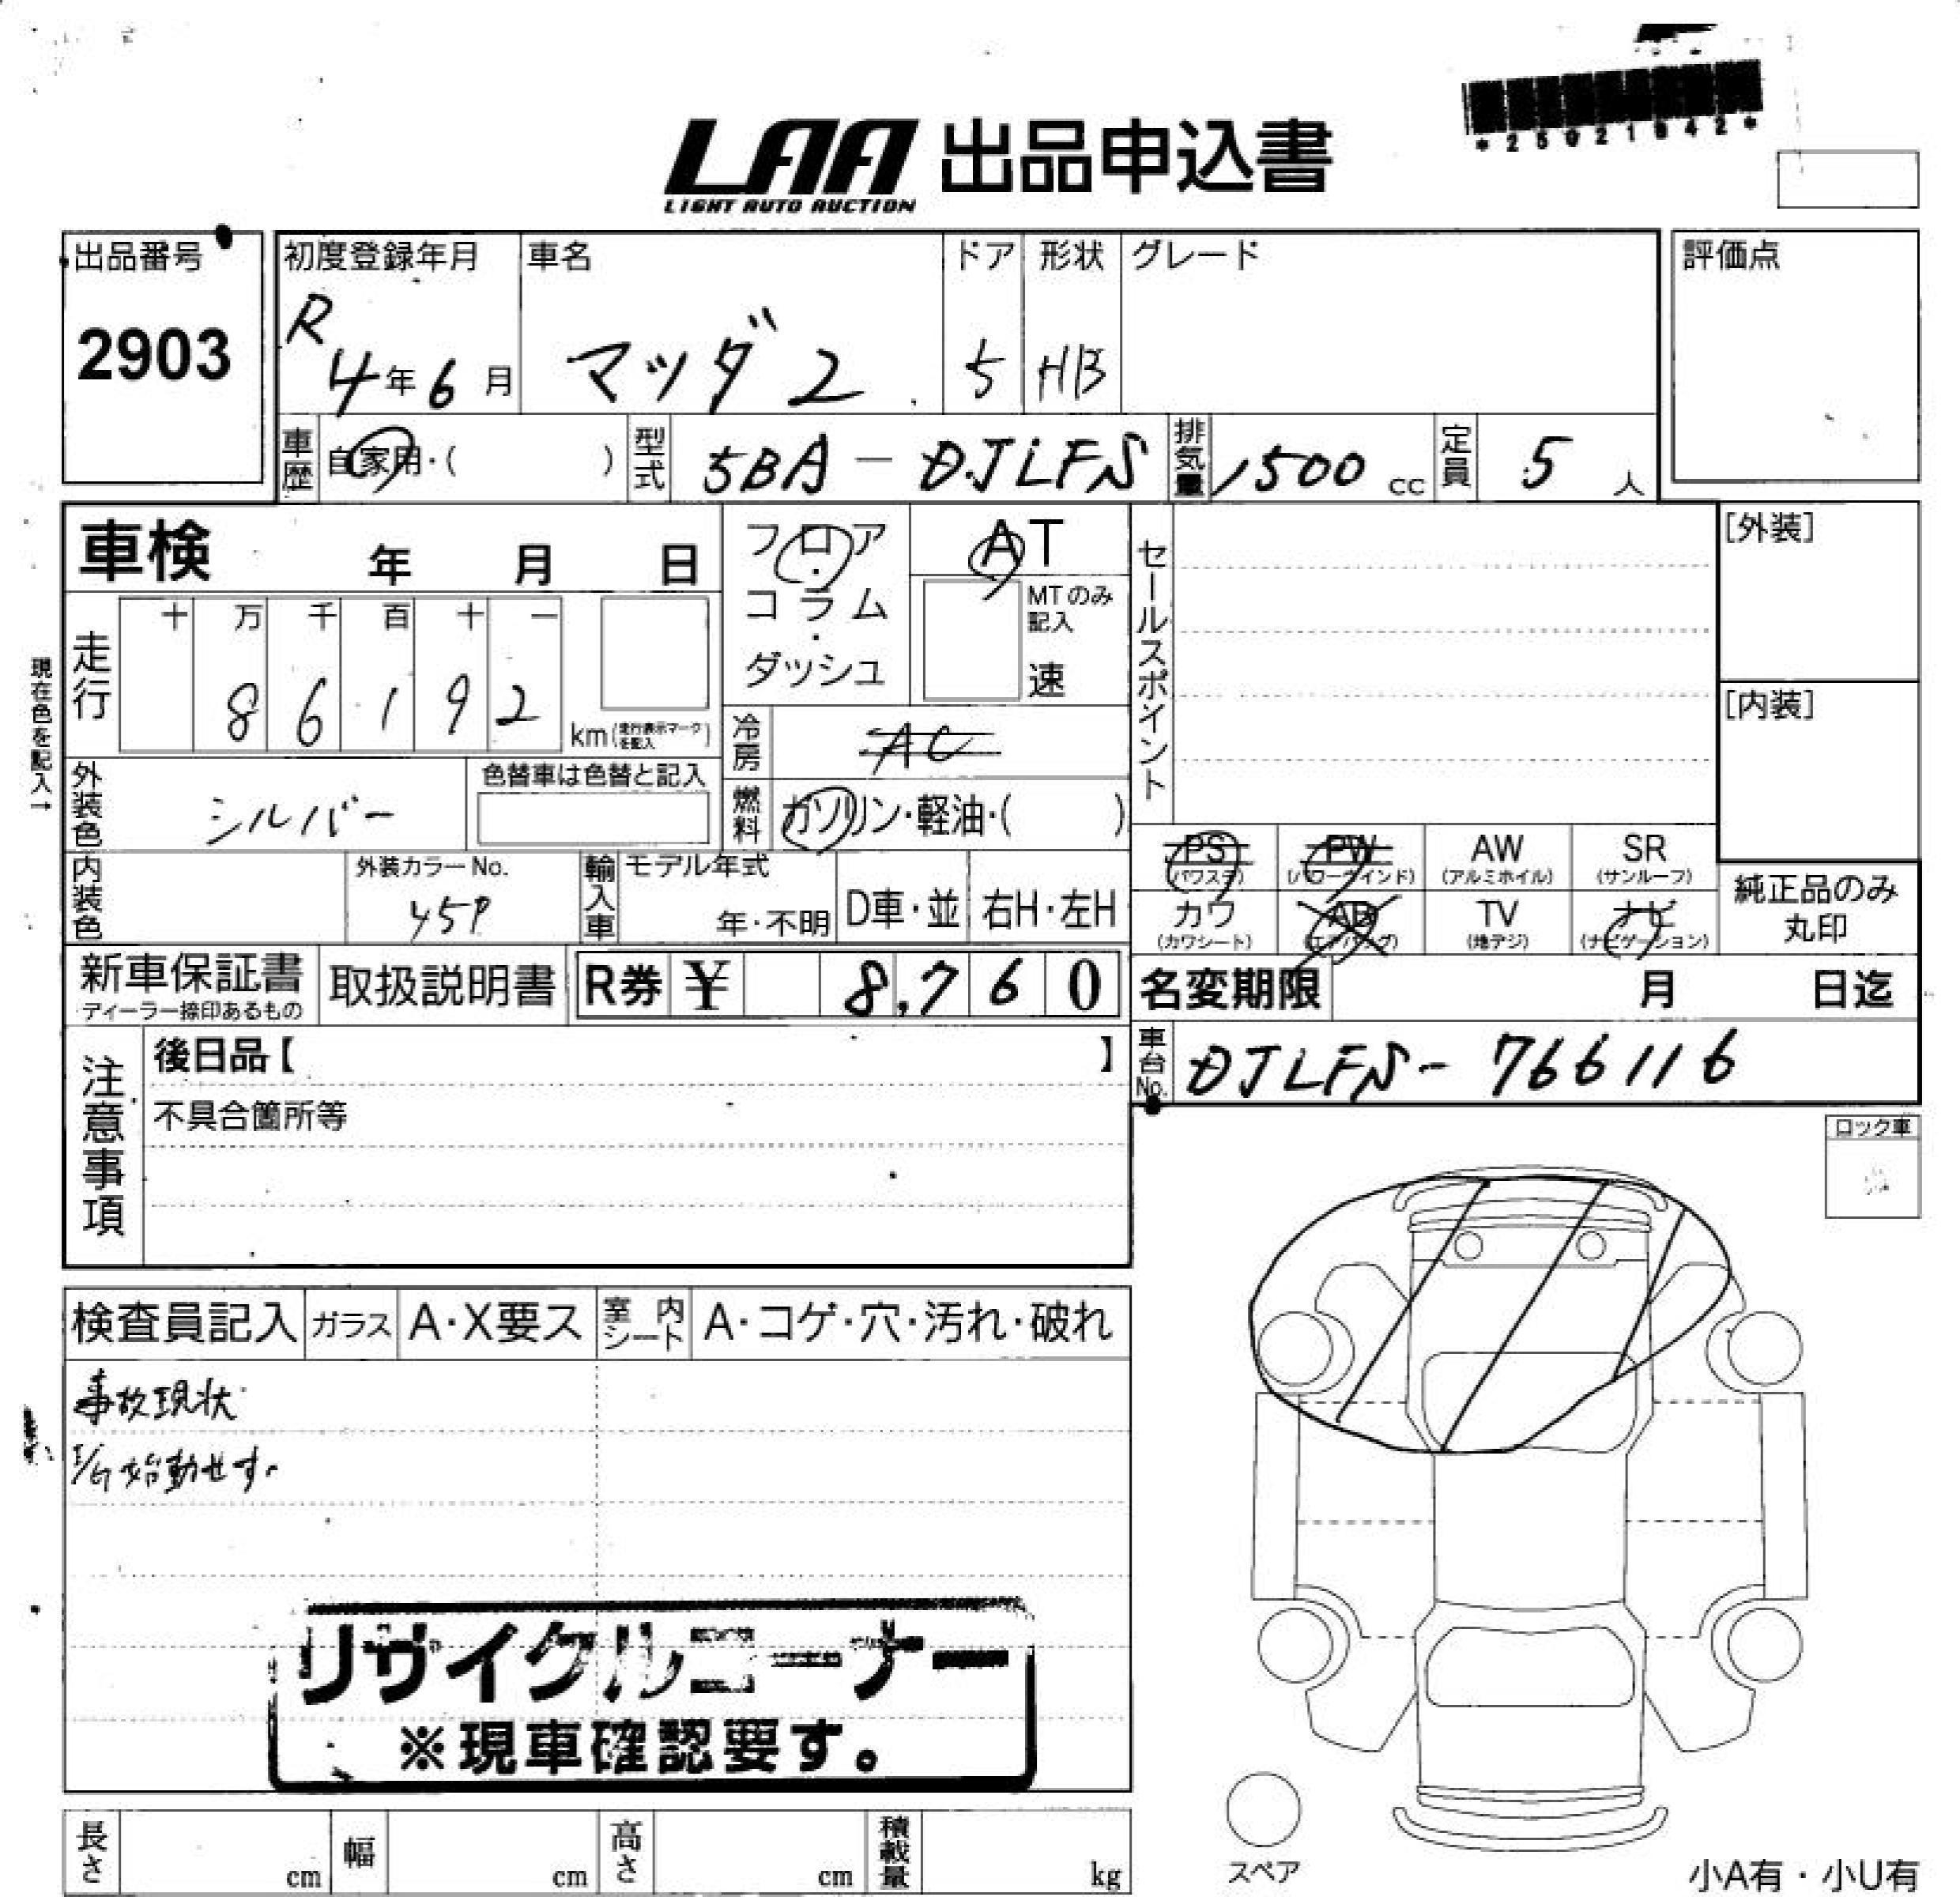 *25021042*
LAA 出品申込書
LIGHT AUTO AUCTION
出品番号
2903
初度登録年月
R
4年6月
車名
マツダ2
ドア
5
形状
HB
グレード
評価点
車歴
自家用・( )
型式
5BA-DJLFS
排気量
1500cc
定員
5人
車検 年 月 日
フロア
・
コラム
・
ダッシュ
AT
MTのみ
記入
速
セールスポイント
[外装]
[内装]
現在色を記入→
走行
十 万 千 百 十 一
8 6 1 9 2
km(走行表示マークを記入)
冷房
AC
外装色
シルバー
色替車は色替と記入
燃料
ガソリン・軽油・( )
内装色
外装カラーNo.
45P
輸入車
モデル年式
年・不明
D車・並
右H・左H
PS
(パワステ)
PW
(パワーウインド)
AW
(アルミホイル)
SR
(サンルーフ)
カワ
(カワシート)
AB
(エアバッグ)
TV
(地デジ)
ナビ
(ナビゲーション)
純正品のみ
丸印
新車保証書
ディーラー捺印あるもの
取扱説明書
R券 ¥ 8,760
名変期限 月 日迄
注意事項
後日品【 】
不具合箇所等
車台No.
DJLFS-766116
ロック車
検査員記入
ガラス
A・X要ス
室内シート
A・コゲ・穴・汚れ・破れ
事故現状
E/G始動せず。
リサイクルコーナー
※現車確認要す。
長さ cm
幅 cm
高さ cm
積載量 kg
スペア
小A有・小U有